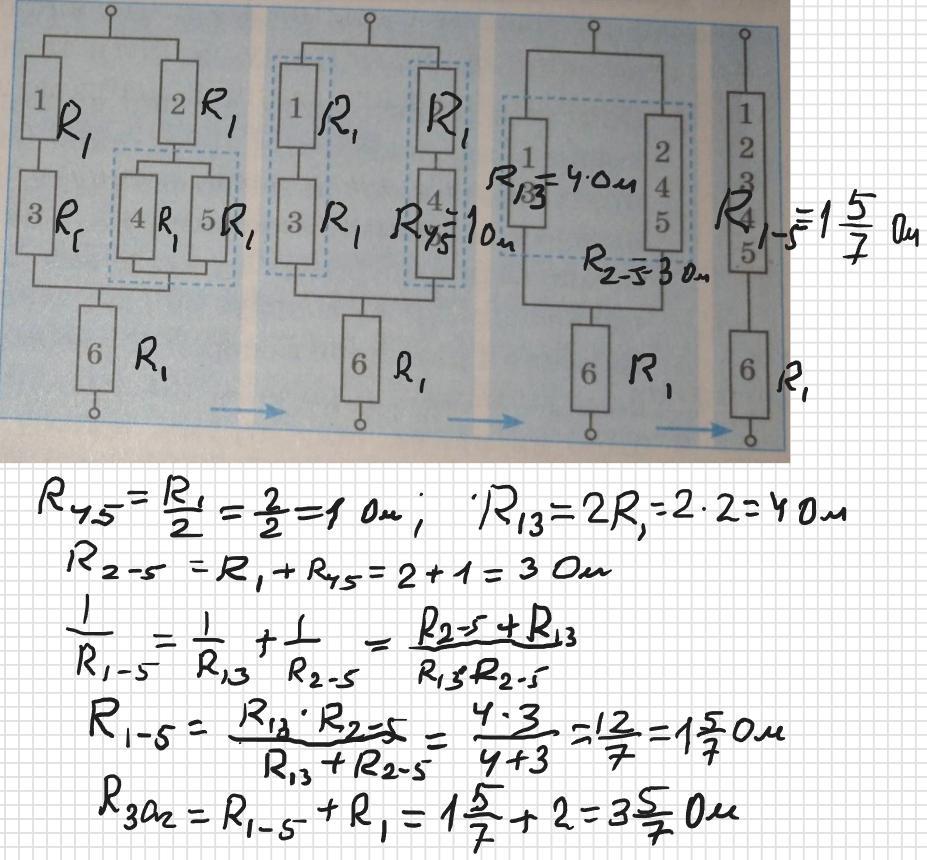 1 R₁ 2 R₁ 1 R₁ R₁
3 R₁ 4 R₁ 5 R₁ 3 R₁ R₄₅ = 1 Ом
6 R₁ 6 R₁
1 3 R₁₃ = 4·Ом 2 4 5 R₂₋₅ = 3 Ом
6 R₁
1 2 3 4 5 R₁₋₅ = 1 5/7 Ом
6 R₁
R₄₅ = R₁/2 = 2/2 = 1 Ом; R₁₃ = 2R₁ = 2·2 = 4 Ом
R₂₋₅ = R₁ + R₄₅ = 2 + 1 = 3 Ом
1/R₁₋₅ = 1/R₁₃ + 1/R₂₋₅ = (R₂₋₅ + R₁₃)/(R₁₃·R₂₋₅)
R₁₋₅ = (R₁₃·R₂₋₅)/(R₁₃ + R₂₋₅) = (4·3)/(4+3) = 12/7 = 1 5/7 Ом
Rзаг = R₁₋₅ + R₁ = 1 5/7 + 2 = 3 5/7 Ом